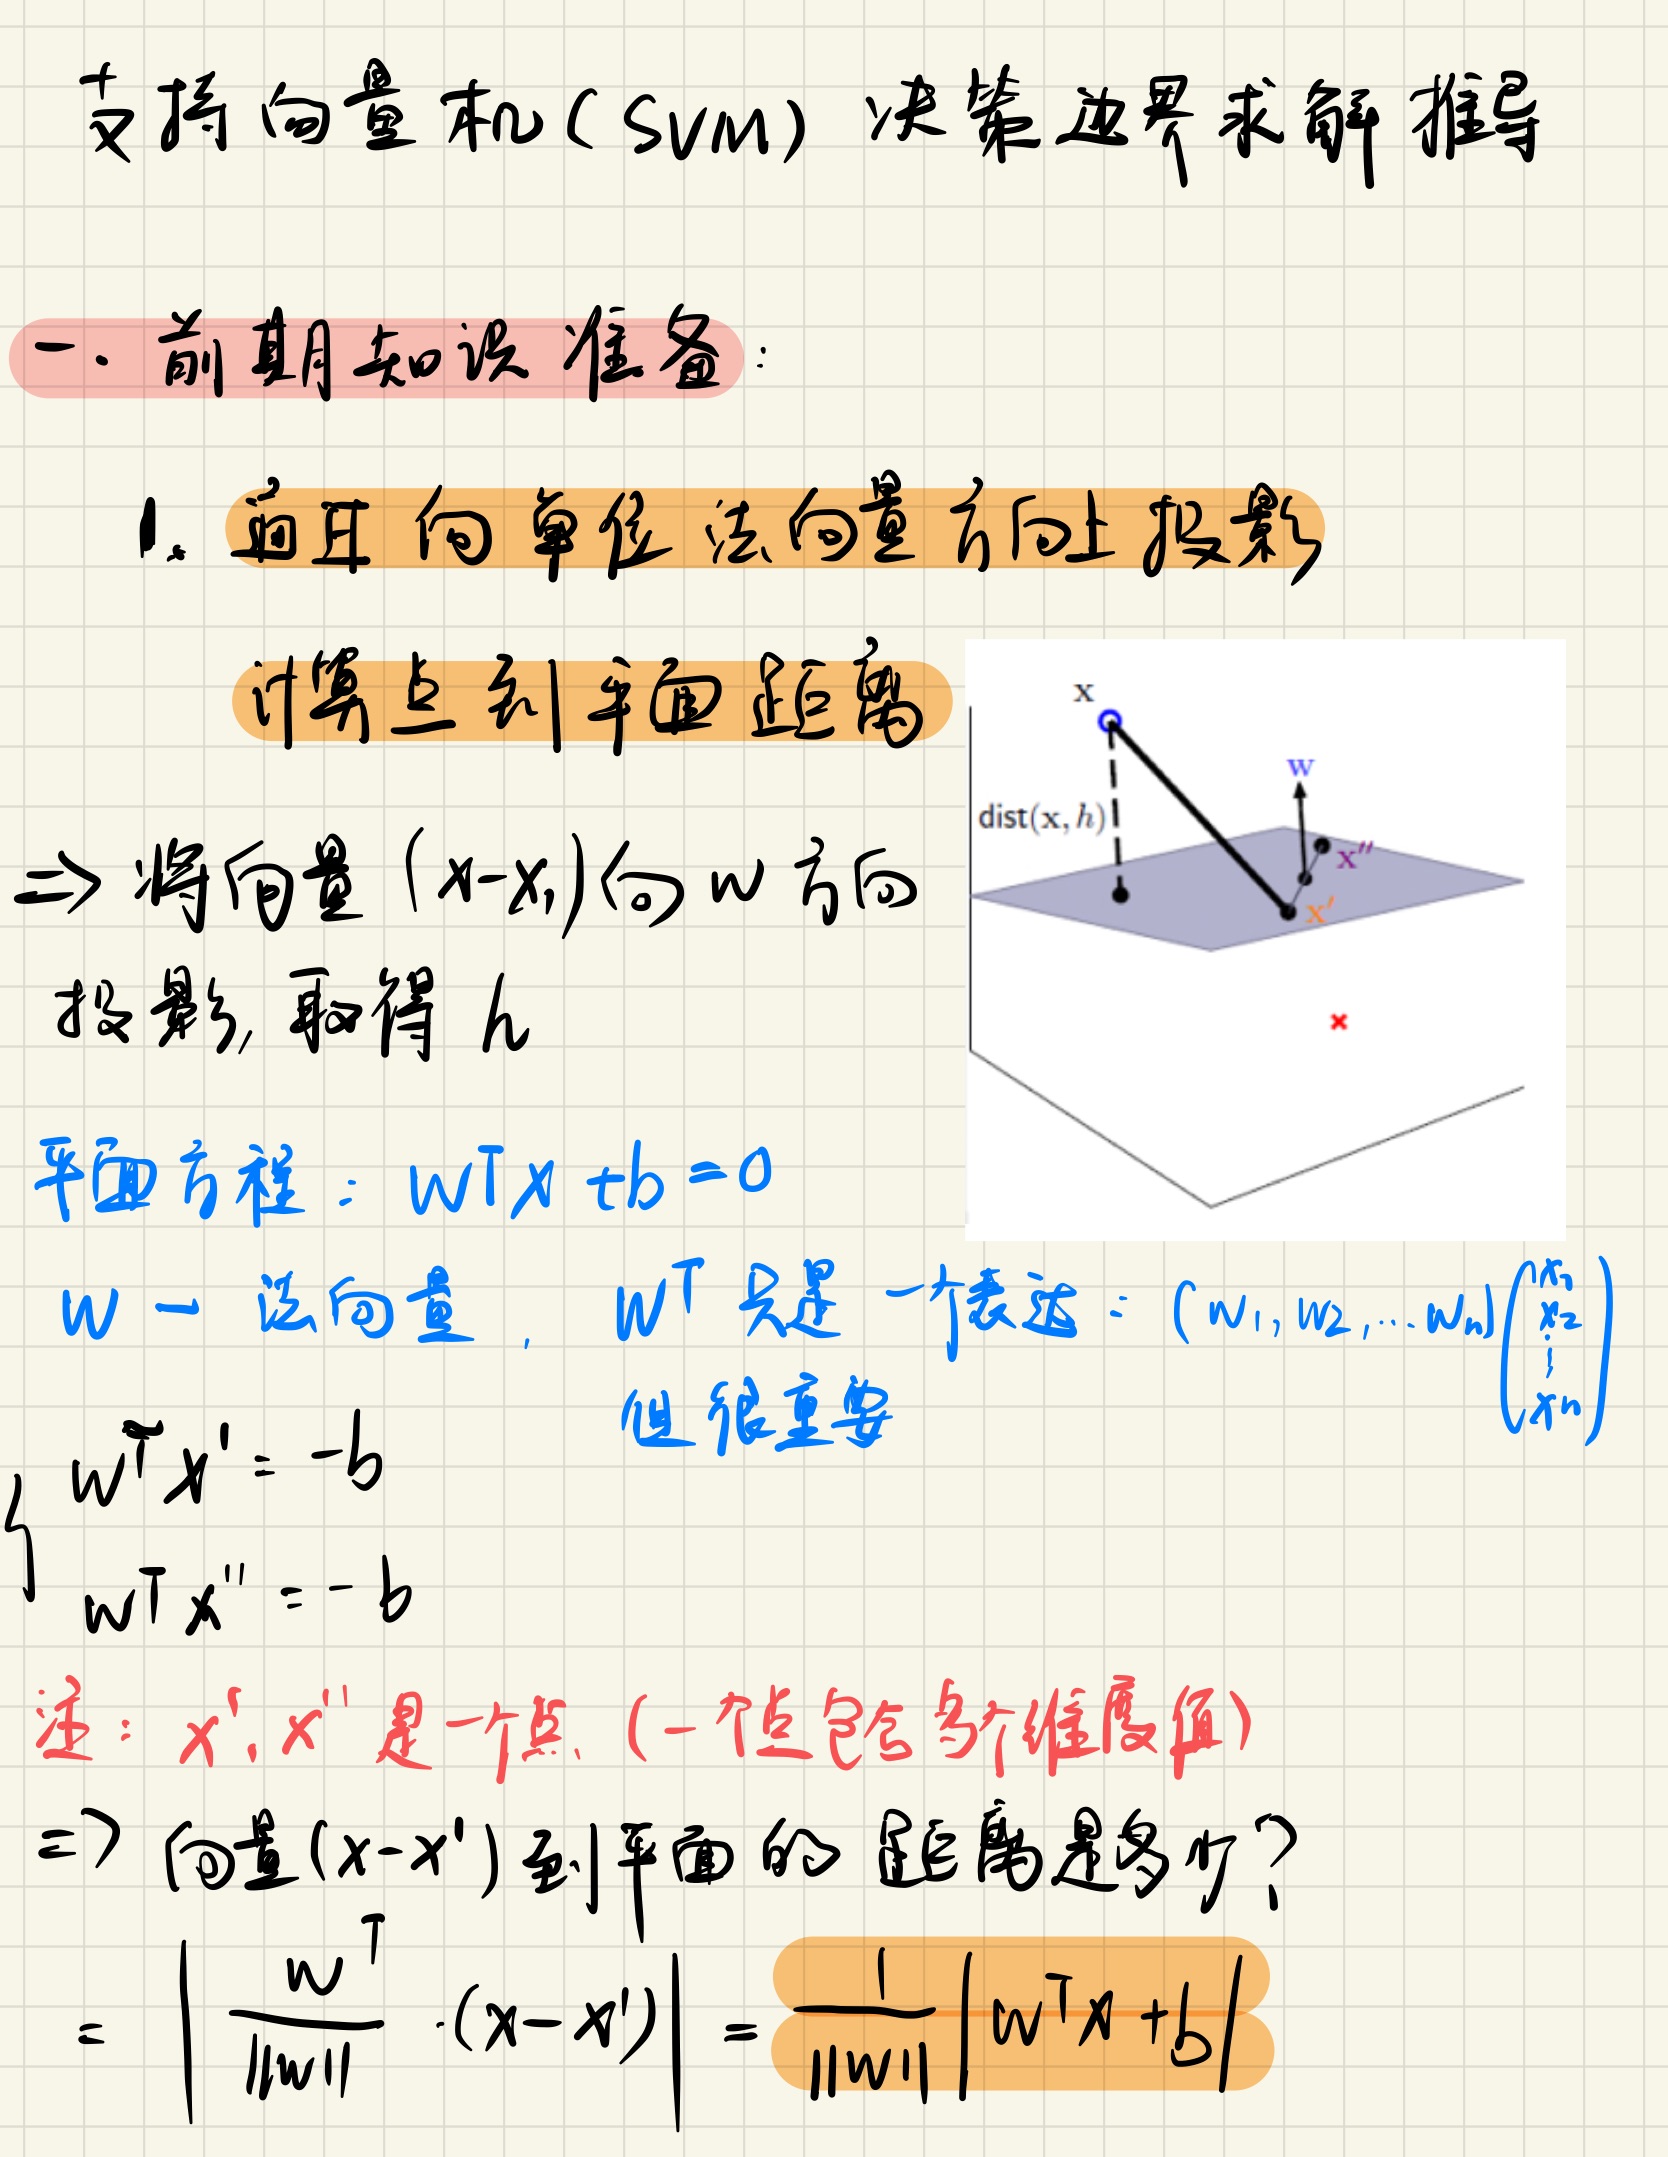 支持向量机(SVM) 决策边界求解推导
一. 前期知识准备:
1. 通过向单位法向量方向上投影
计算点到平面距离
x
w
dist(x, h)
x″
x′
=> 将向量 (x-x,)向 w 方向
投影, 取得 h
平面方程: wᵀx+b=0
w — 法向量, wᵀ 只是一个表达: (w₁, w₂, ... wₙ)(x₁ x₂ ⋮ xₙ)
但很重要
{ wᵀx' = -b
wᵀx'' = -b
注: x'、x'' 是一个点 (一个点包含多个维度值)
=> 向量(x-x')到平面的距离是多少?
= | wᵀ/||w|| ·(x-x') | = 1/||w|| |wᵀx+b|